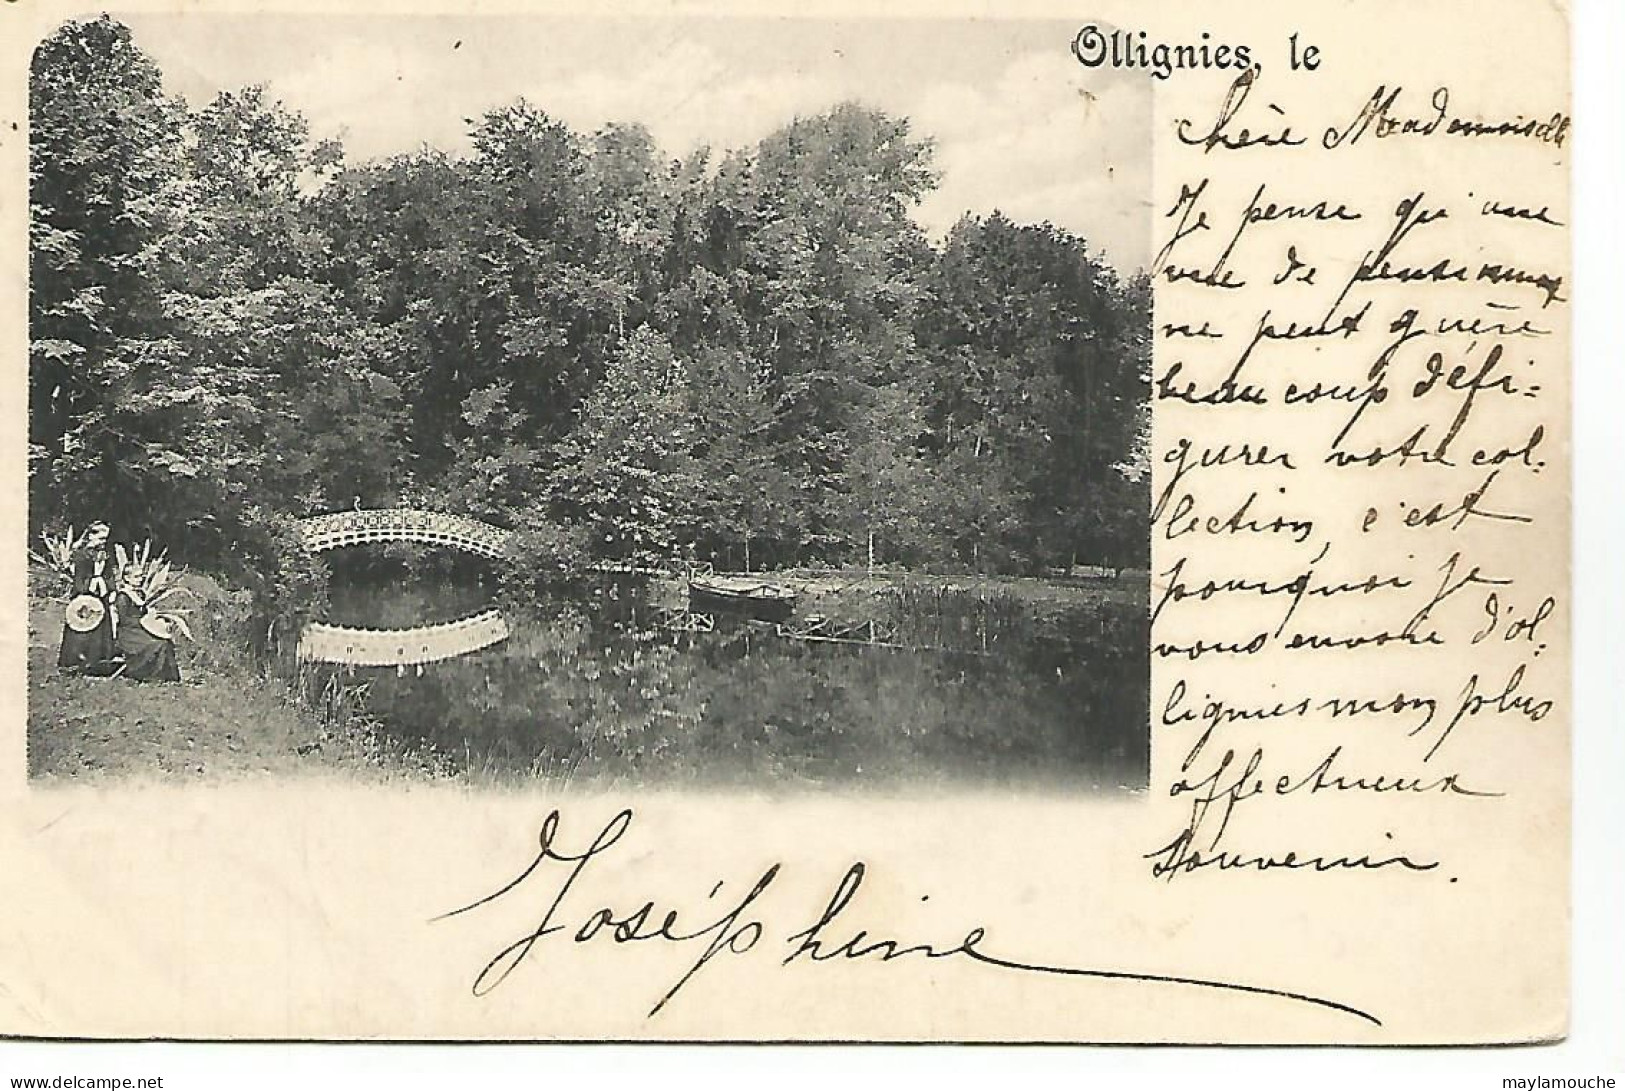 Ollignies, le
Chère Mademoiselle
Je pense qu'une
vue de pensionnat
ne peut guère
beaucoup défi=
gurer votre col.
lection, c'est
pourquoi je
vous envoie d'ol.
lignies mon plus
affectueux
souvenir.
Joséphine
delcampe.net
maylamouche